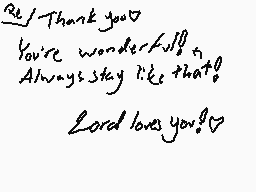 Re/ Thank you♡
You're wonderful!
Always stay like that!
Lord loves you!♡